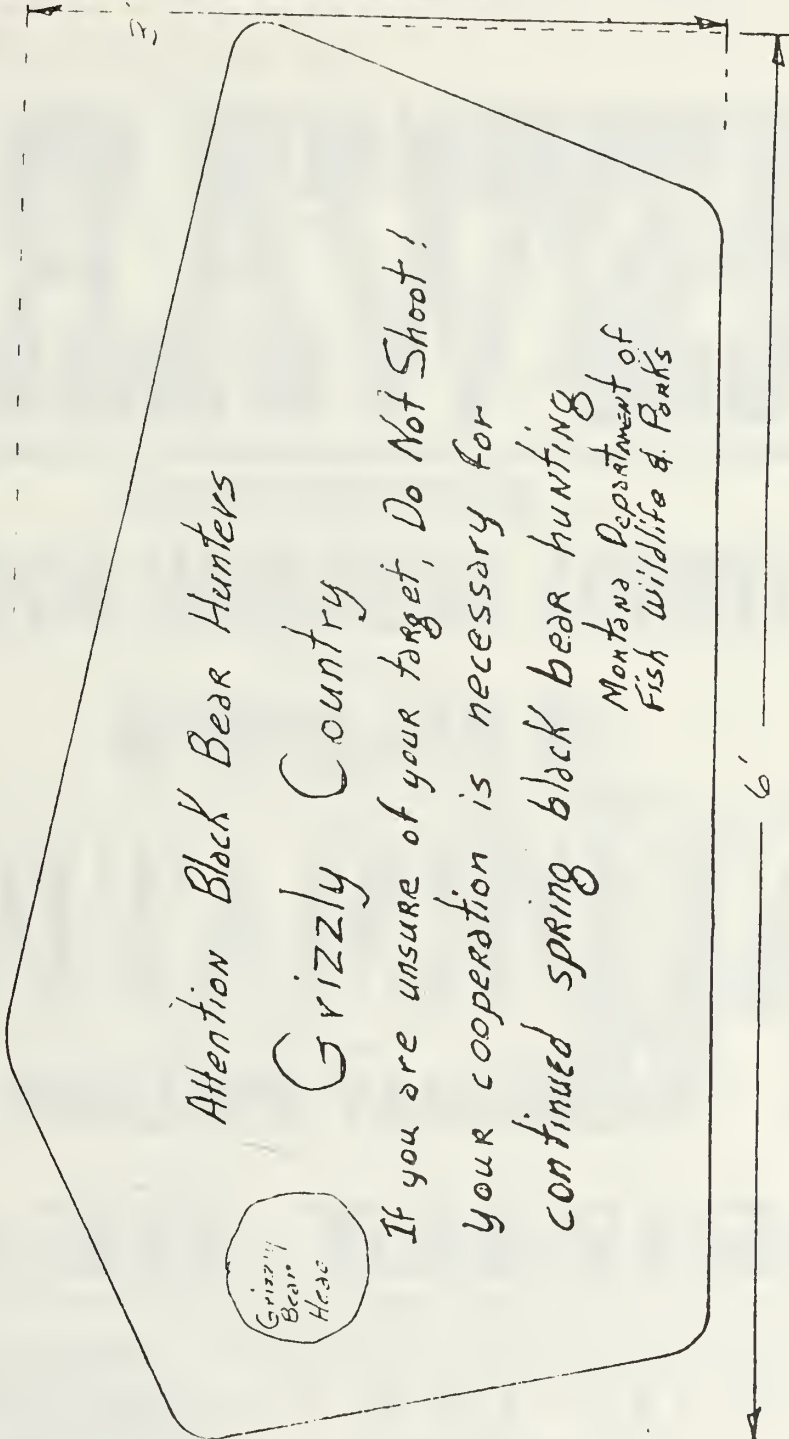 3'
Attention Black Bear Hunters
Grizzly Country
Grizzly
Bear
Head
If you are unsure of your target, Do Not Shoot!
your cooperation is necessary for
continued spring black bear hunting
Montana Department of
Fish Wildlife & Parks
6'